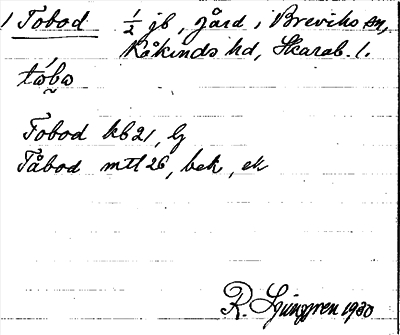 1 Tobod ½ jb, gård i Breviks sn,
Kåkinds hd, Skarab. l.
tobo
Tobod kb 21, lj
Tåbod mtl 26, bek, ek
R. Ljunggren 1930